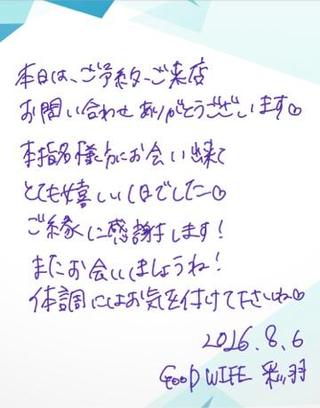 本日は、ご予約、ご来店
お問い合わせありがとうございます♡
本指名様方にお会い出来て
とても嬉しい1日でした♡
ご縁に感謝します!
またお会いしましょうね!
体調にはお気を付けて下さいね♡
2026.8.6
GOOD WIFE 彩羽